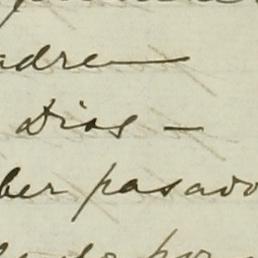 adre
Dios —
ber pasado
por